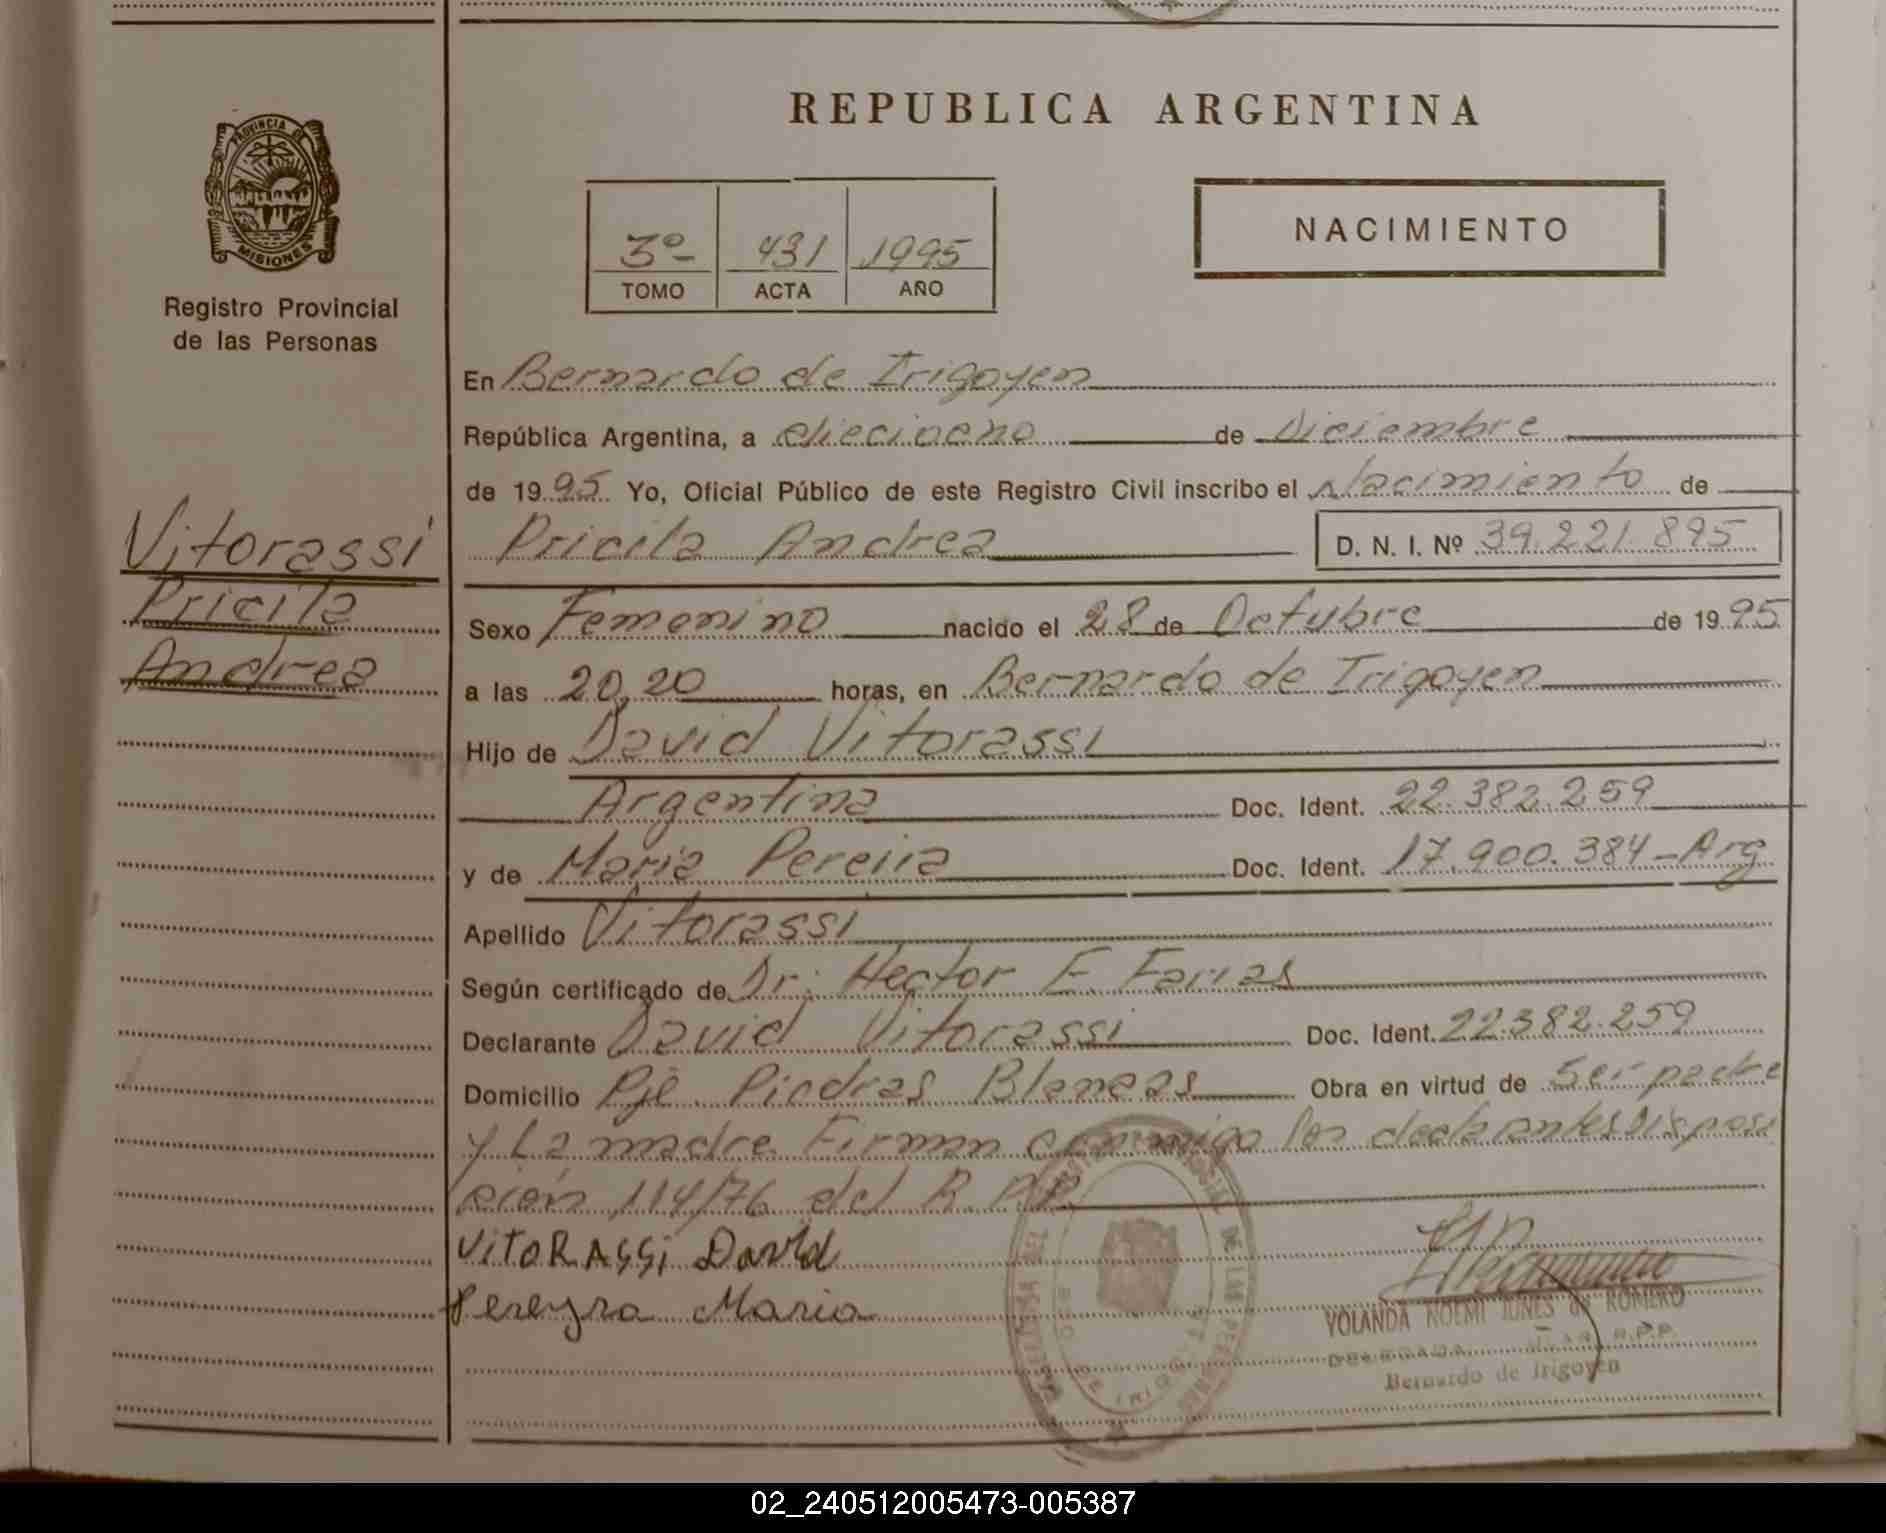 REPUBLICA ARGENTINA
PROVINCIA DE
MISIONES
Registro Provincial
de las Personas
3º 431 1995
TOMO ACTA AÑO
NACIMIENTO
En Bernardo de Irigoyen
República Argentina, a dieciocho de Diciembre
de 1995 Yo, Oficial Público de este Registro Civil inscribo el Nacimiento de
Pricila Andrea D. N. I. Nº 39.221.895
Vitorassi
Pricila
Andrea
Sexo Femenino nacido el 28 de Octubre de 1995
a las 20,20 horas, en Bernardo de Irigoyen
Hijo de David Vitorassi
Argentina Doc. Ident. 22.382.259
y de Maria Pereira Doc. Ident. 17.900.384 - Arg
Apellido Vitorassi
Según certificado de Dr: Hector E. Farias
Declarante David Vitorassi Doc. Ident. 22.382.259
Domicilio Pje Piedras Blancas Obra en virtud de ser padre
y La madre. Firman conmigo los declarantes Disposi
ción 114/76 del R.P.P.
VitoRAssi David
Pereyra Maria
YOLANDA NOEMI de ROMERO
DELEGADA TITULAR R.P.P.
Bernardo de Irigoyen
02_240512005473-005387